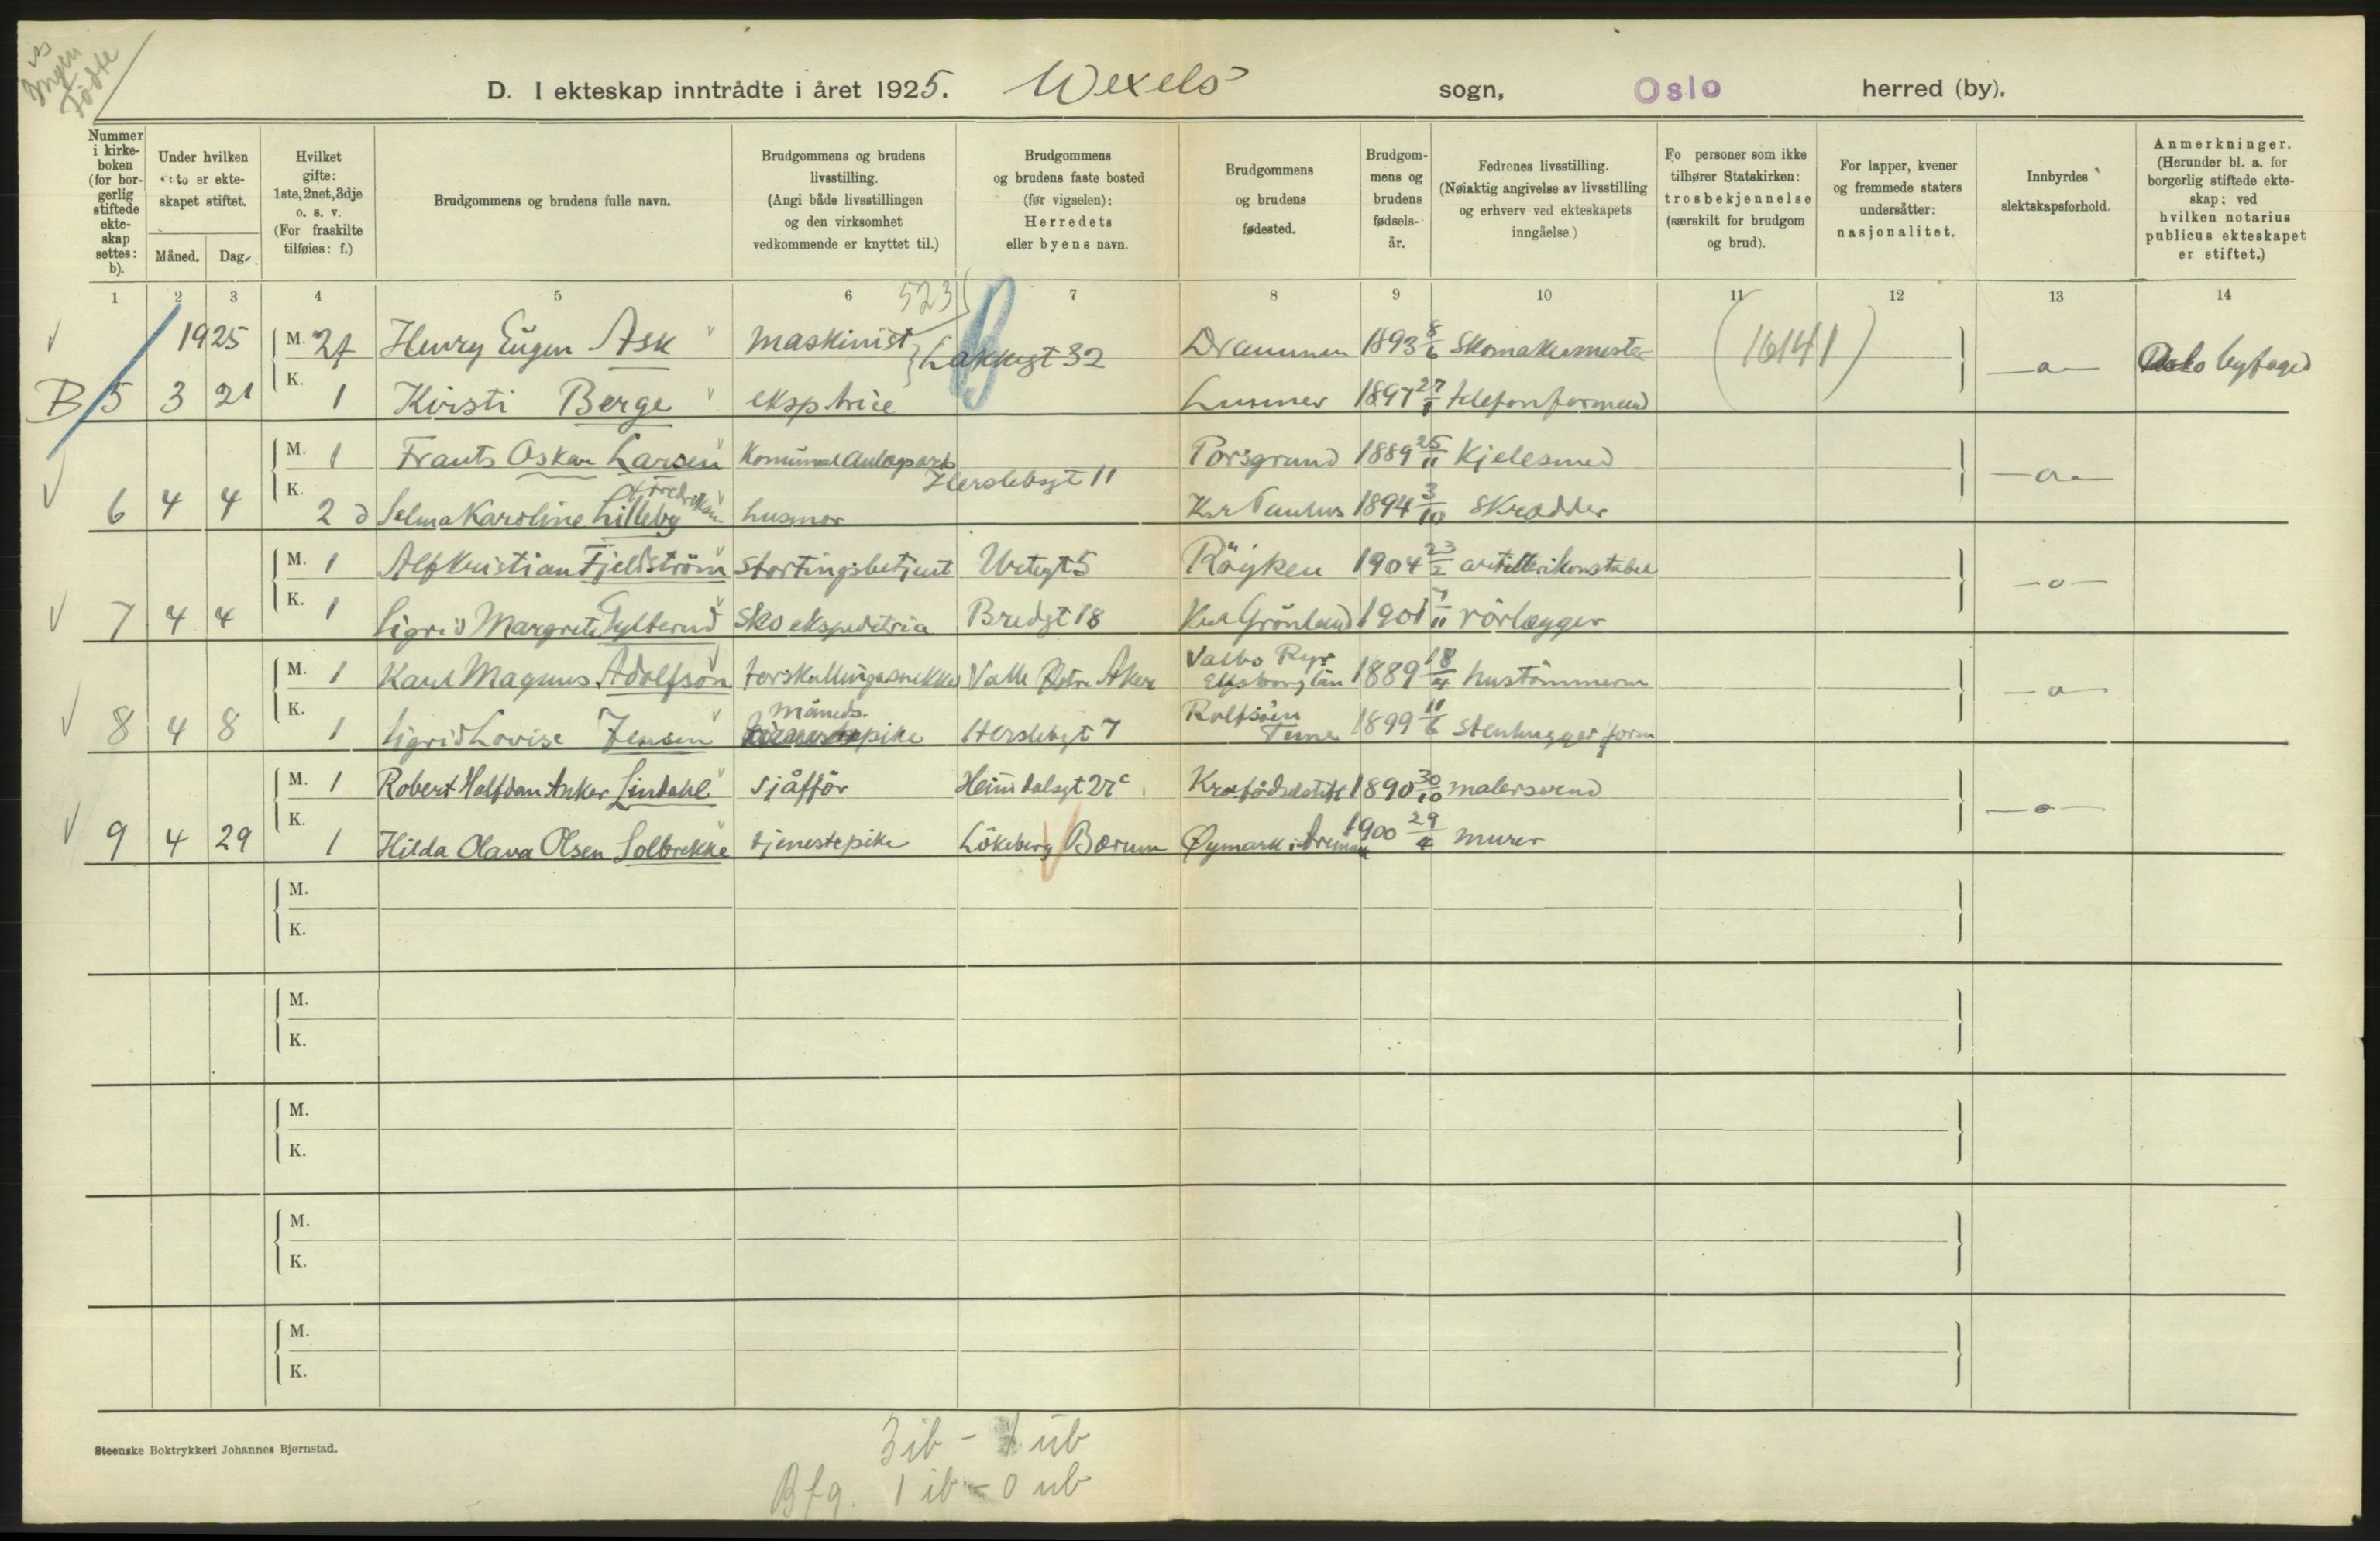 Ingen
Fødte
D. I ekteskap inntrådte i året 1925. Wexels sogn, Oslo herred (by).
Nummer i kirke-boken (for bor-gerlig stiftede ekte-skap settes: b).
Under hvilken dato er ekte-skapet stiftet.
Måned. Dag.
Hvilket gifte: 1ste, 2net, 3dje o. s. v. (For fraskilte tilføies: f.)
Brudgommens og brudens fulle navn.
Brudgommens og brudens livsstilling. (Angi både livsstillingen og den virksomhet vedkommende er knyttet til.)
Brudgommens og brudens faste bosted (før vigselen): Herredets eller byens navn.
Brudgommens og brudens fødested.
Brudgom-mens og brudens fødsels-år.
Fedrenes livsstilling. (Nøiaktig angivelse av livsstilling og erhverv ved ekteskapets inngåelse.)
Fo personer som ikke tilhører Statskirken: trosbekjennelse (særskilt for brudgom og brud).
For lapper, kvener og fremmede staters undersåtter: nasjonalitet.
Innbyrdes slektskapsforhold.
Anmerkninger. (Herunder bl. a. for borgerlig stiftede ekte-skap: ved hvilken notarius publicus ekteskapet er stiftet.)
1 2 3 4 5 6 7 8 9 10 11 12 13 14
523
1925 M. 2f Henry Eugen Ask maskinist Lakkegt 32 Drammen 1893 8/6 Skomakermester (16141) Oslo byfoged
B 5 3 21 K. 1 Kirsti Berge eksptrice Lunner 1897 27/1 telefonformand
M. 1 Frants Oskar Larsen Herslebsgt 11 Porsgrund 1889 25/11 Kjelesmed
6 4 4 K. 2 Selma Karoline Lilleby husmor 1894 3/10 Skrædder
M. 1 Alf Kristian Fjeldström Stortingsbetjent Urtegt 5 Röyken 1904 23/2 artillerikonstabel
7 4 4 K. 1 Sigrid Margrete Gylterud Sko ekspeditrice Bredgt 18 Grönland 1901 7/11 rörlægger
M. 1 Karl Magnus Adolfson Valle Østre Aker Valbo Ryr Elfsborg län 1889 18/4 hustömmerm
8 4 8 K. 1 Sigrid Lovise Jensen måneds-
pike Herslebgt 7 Rolfsöen Tune 1899 11/6 Stenhugger form
M. 1 Robert Halfdan Anker Lindahl Sjåfför Heimdalsgt 27c Kra födselstift 1890 30/10 malersvend
9 4 29 K. 1 Hilda Olava Olsen Solbrekke tjenestepike Lökeberg Bærum Øymark i Aremark 1900 29/4 murer
M.
K.
M.
K.
M.
K.
M.
K.
M.
K.
Steenske Boktrykkeri Johannes Bjørnstad.
3 ib - 1 ub
Bfg. 1 ib - 0 ub